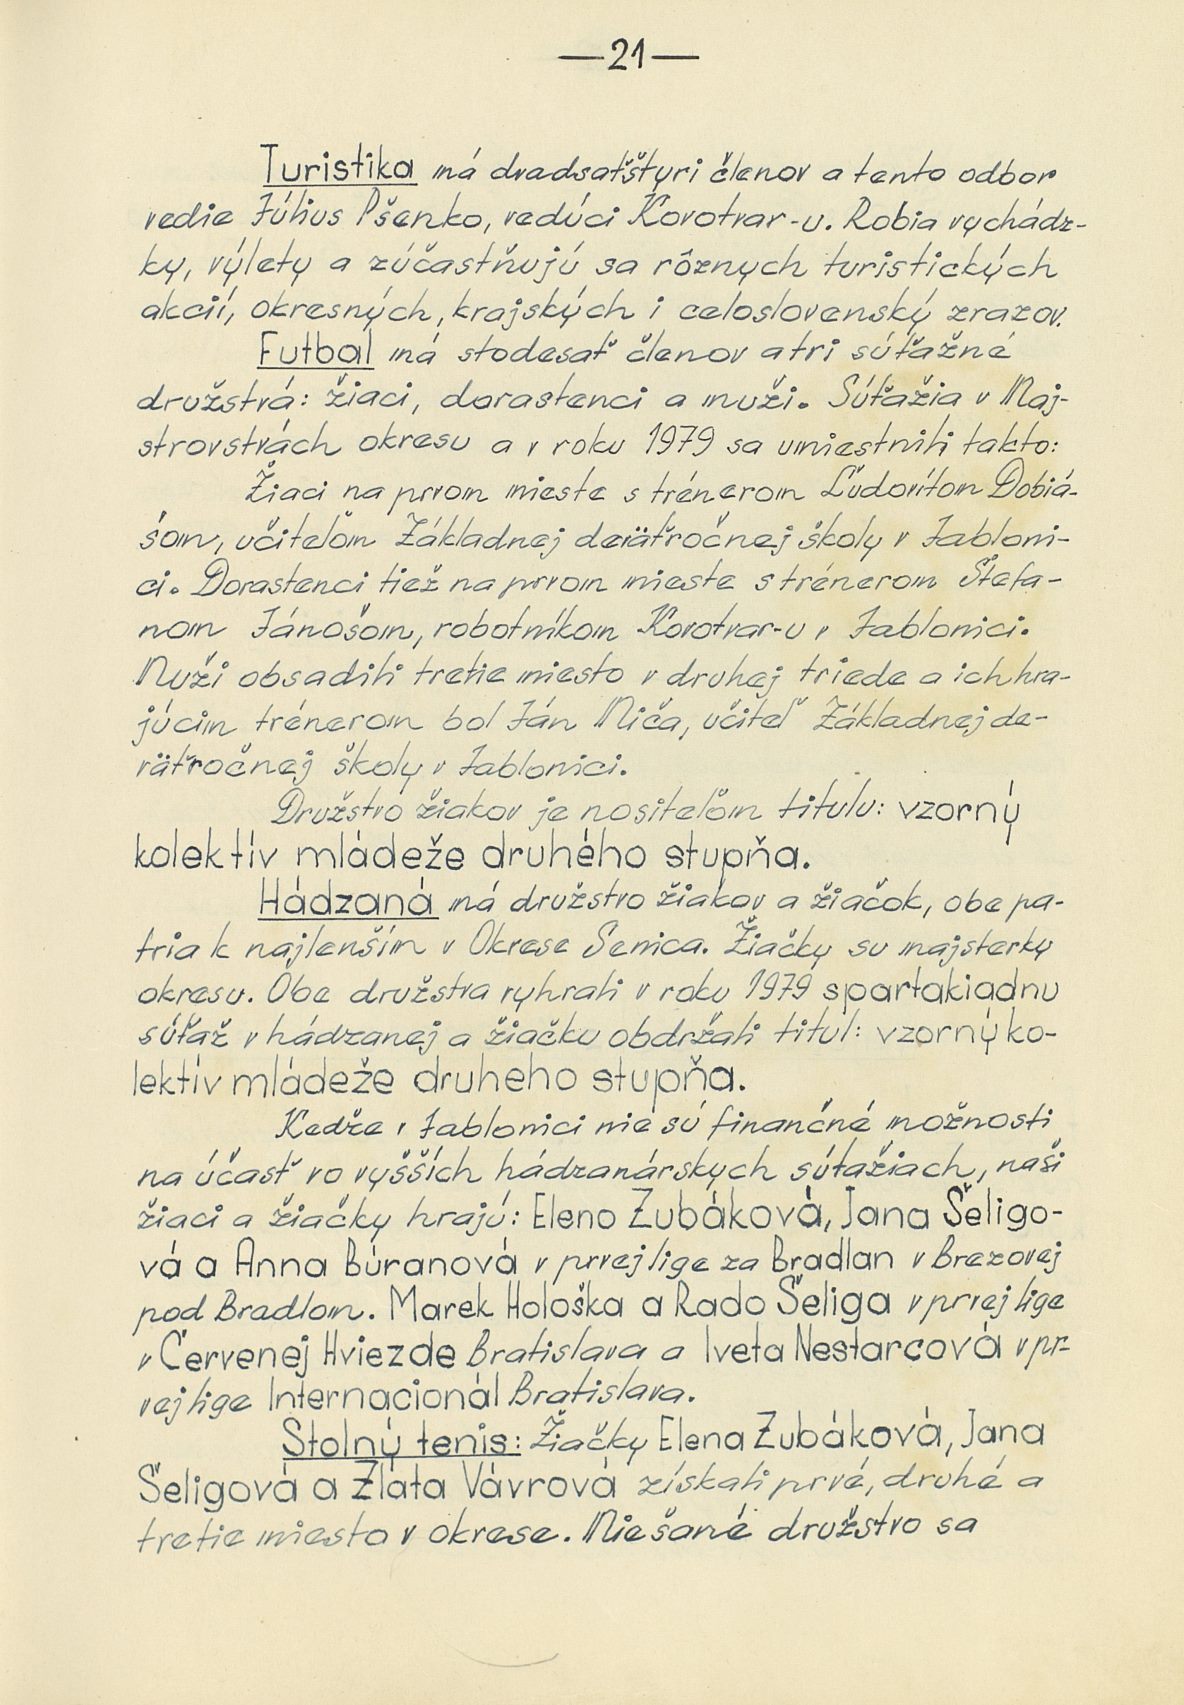 —21—
Turistika má dvadsaťštyri členov a tento odbor
vedie Július Pšenko, vedúci Kovotvar-u. Robia vychádz-
ky, výlety a zúčastňujú sa rôznych turistických
akcií, okresných, krajských i celoslovenský zrazov.
Futbal má stodesať členov a tri súťažné
družstvá: žiaci, dorastenci a muži. Súťažia v Maj-
strovstvách okresu a v roku 1979 sa umiestnili takto:
Žiaci na prvom mieste s trénerom Ľudovítom Dobiá-
šom, učiteľom Základnej deväťročnej školy v Jabloni-
ci. Dorastenci tiež na prvom mieste s trénerom Štefa-
nom Jánošom, robotníkom Kovotvar-u v Jablonici.
Muži obsadili tretie miesto v druhej triede a ich hra-
júcim trénerom bol Ján Miča, učiteľ Základnej de-
väťročnej školy v Jablonici.
Družstvo žiakov je nositeľom titulu: vzorný
kolektív mládeže druhého stupňa.
Hádzaná má družstvo žiakov a žiačok, obe pa-
tria k najlenším v Okrese Senica. Žiačky su majsterky
okresu. Obe družstva vyhrali v roku 1979 spartakiadnu
súťaž v hádzanej a žiačku obdržali titul: vzorný ko-
lektív mládeže druheho stupňa.
Kedže v Jablonici nie sú finančné možnosti
na účasť vo vyšších hádzanárskych súťažiach, naši
žiaci a žiačky hrajú: Eleno Zubáková, Jana Šeligo-
vá a Anna Búranová v prvej lige za Bradlan v Brezovej
pod Bradlom. Marek Hološka a Rado Šeliga v prvej lige
v Červenej Hviezde Bratislava a Iveta Nestarcová v pr-
vej lige Internacionál Bratislava.
Stolný tenis: Žiačky Elena Zubáková, Jana
Šeligová a Zlata Vávrová získali prvé, druhé a
tretie miesto v okrese. Miešané družstvo sa